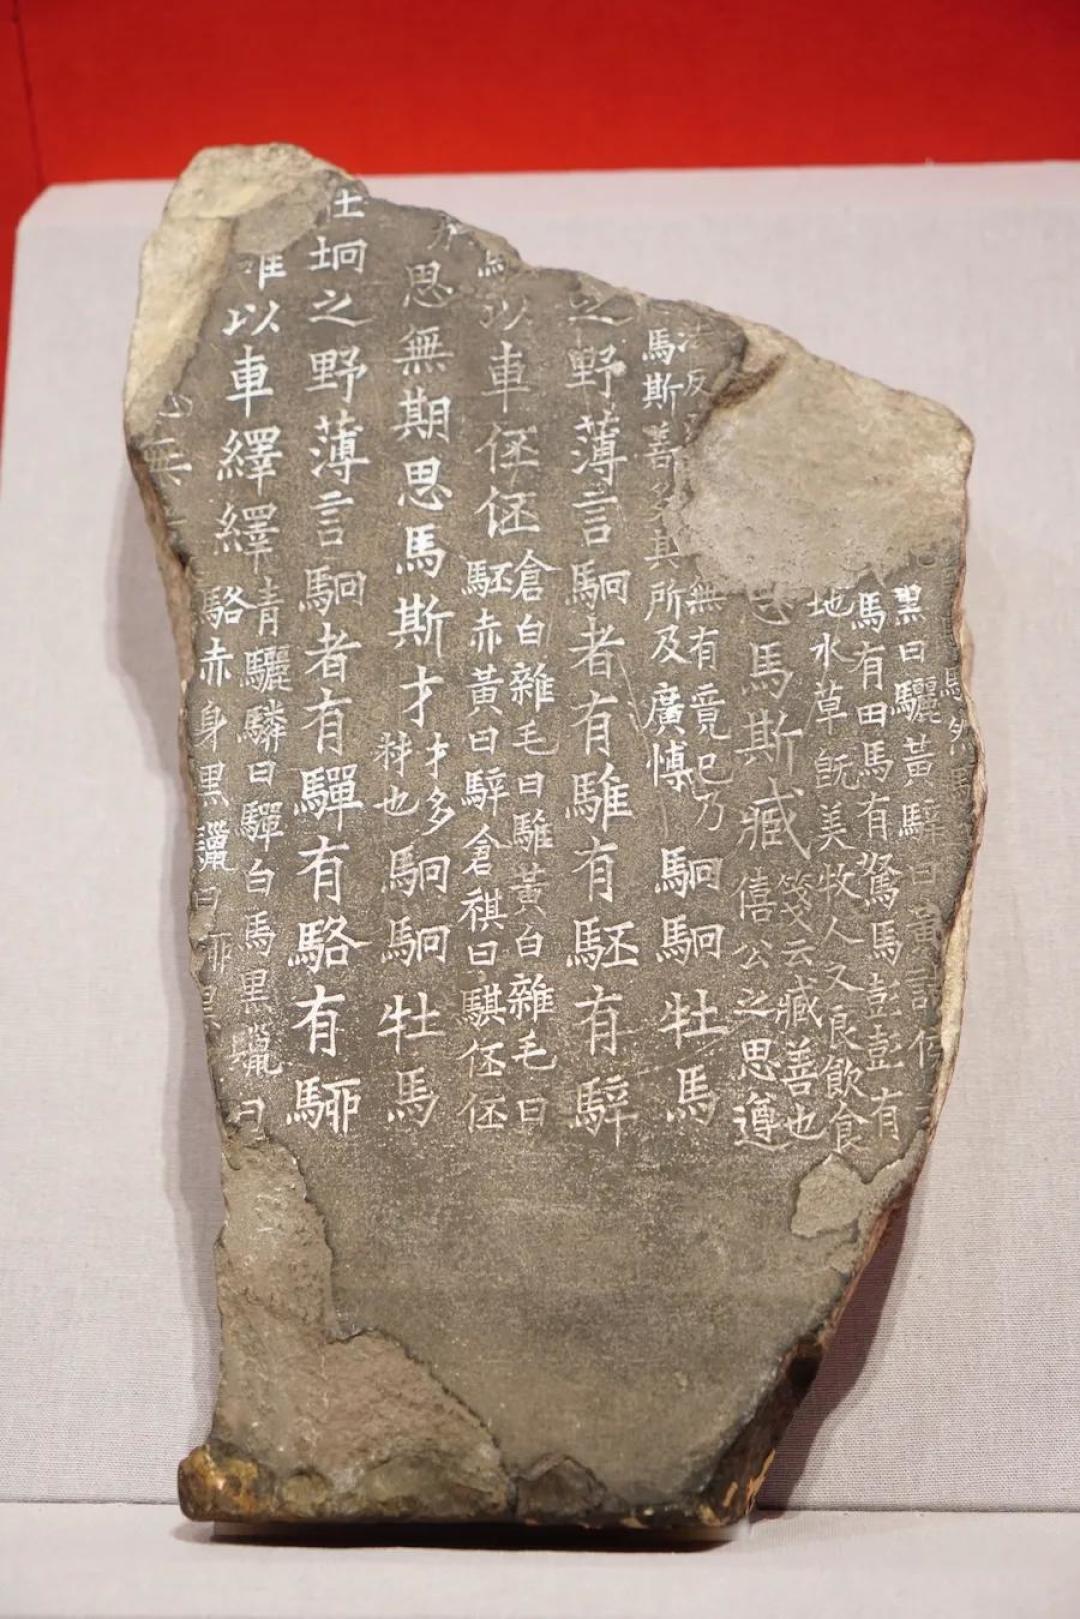 黑曰驪黃騂曰黃諸侯
馬有田馬有駑馬彭彭有
地水草旣美牧人又良飲食
思馬斯臧箋云臧善也
僖公之思遵
法反無有竟已乃
馬斯善多其所及廣博駉駉牡馬
之野薄言駉者有騅有駓有騂
以車伾伾倉白雜毛曰騅黃白雜毛曰
駓赤黃曰騂倉祺曰騏伾伾
思無期思馬斯才才多
材也駉駉牡馬
在坰之野薄言駉者有驒有駱有駵
以車繹繹青驪驎曰驒白馬黑鬣曰
駱赤身黑鬣曰駵黑
無